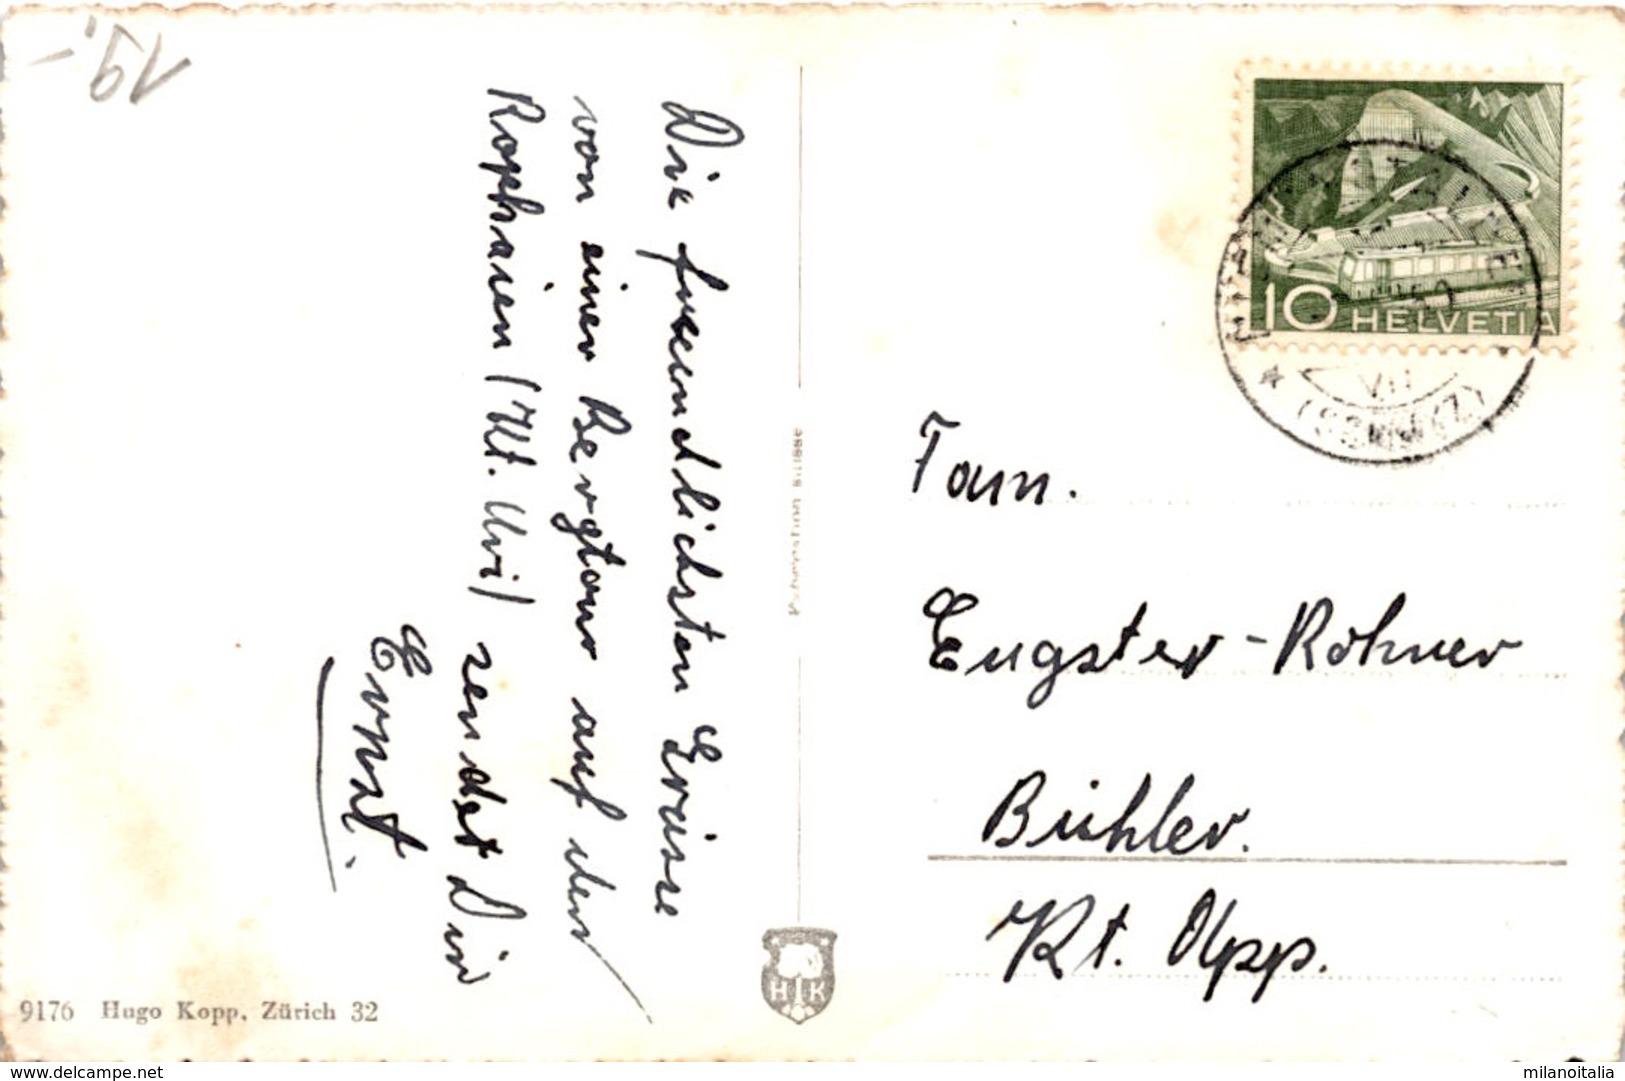 19.-
Die freundlichsten Grüsse
von einer Bergtour auf der
Rophaien (Kt. Uri) sendet Dir
Ernst.
Reproduktion
9176 Hugo Kopp, Zürich 32
HK
10 HELVETIA
VII
(SCHWYZ)
Fam.
Eugster-Rohner
Bühler.
Kt. App.
www.delcampe.net
milanoitalia